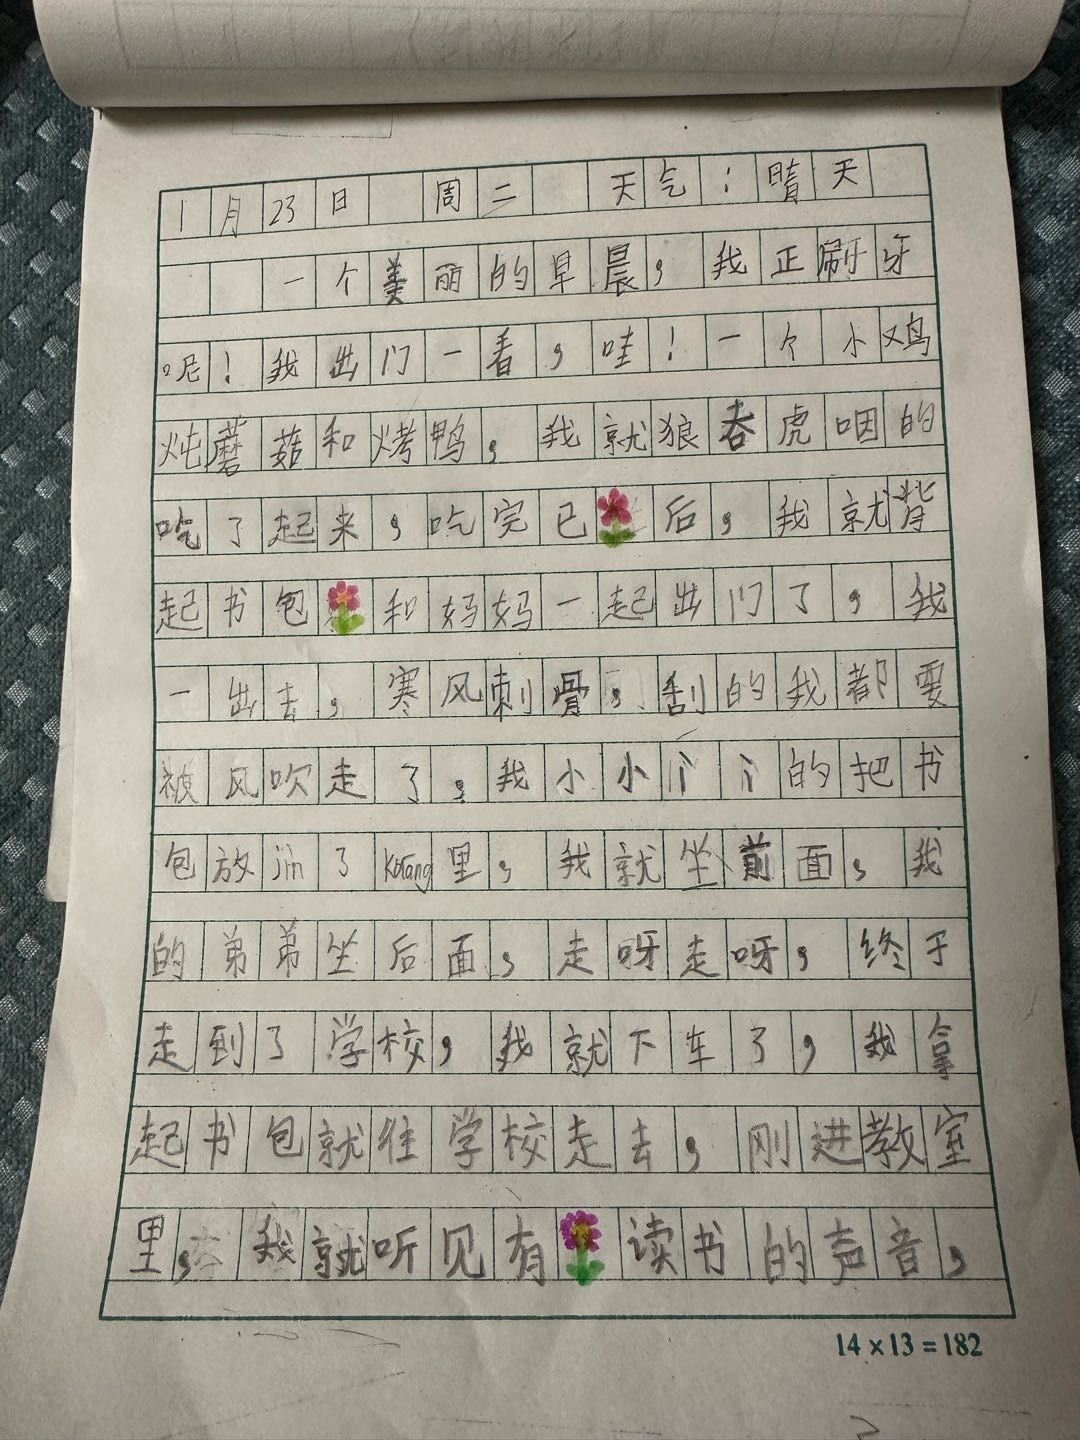 1月23日 周二 天气：晴天
一个美丽的早晨，我正刷牙
呢！我出门一看，哇！一个小鸡
炖蘑菇和烤鸭，我就狼吞虎咽的
吃了起来，吃完已后，我就背
起书包和妈妈一起出门了，我
一出去，寒风刺骨，刮的我都要
被风吹走了，我小小个个的把书
包放jin了kafang里，我就坐前面，我
的弟弟坐后面，走呀走呀，终于
走到了学校，我就下车了，我拿
起书包就往学校走去，刚进教室
里，我就听见有读书的声音，
14×13=182